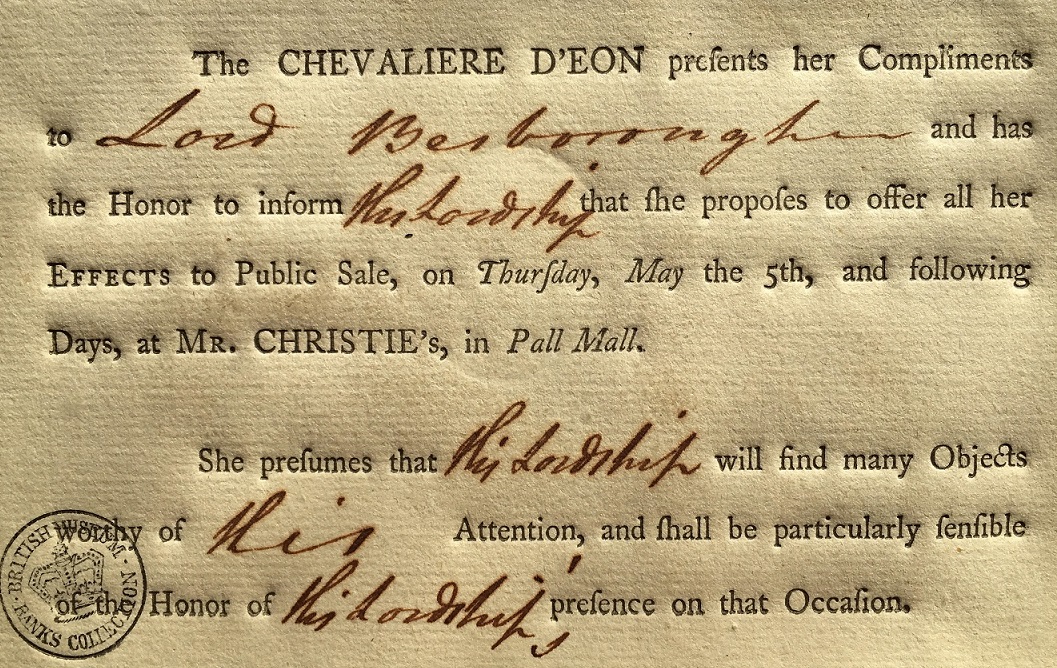 The CHEVALIERE D'EON preſents her Compliments
to Lord Besborough and has
the Honor to inform His Lordship that ſhe propoſes to offer all her
EFFECTS to Public Sale, on Thurſday, May the 5th, and following
Days, at MR. CHRISTIE's, in Pall Mall.
She preſumes that His Lordship will find many Objects
worthy of His Attention, and ſhall be particularly ſenſible
of the Honor of His Lordship's preſence on that Occaſion.
BRITISH MUSEUM
FRANKS COLLECTION